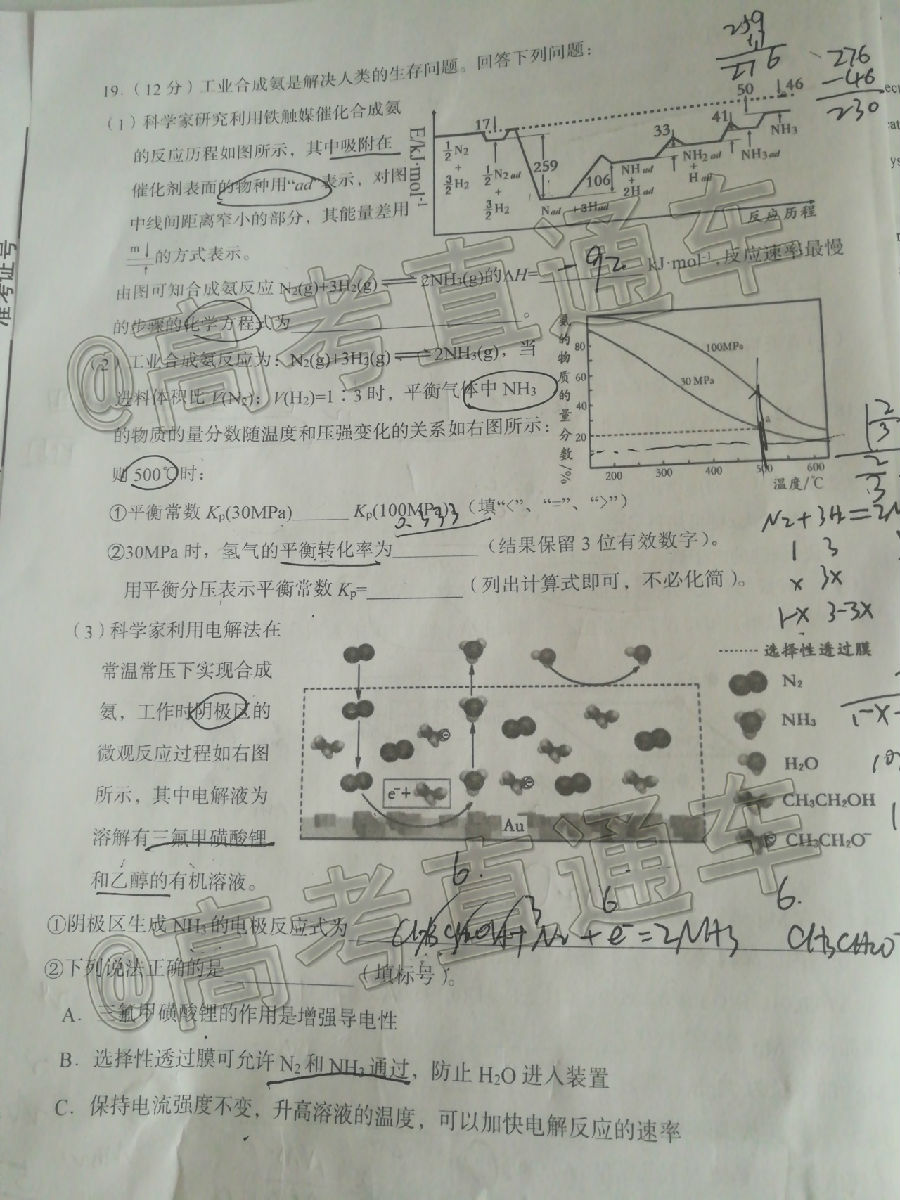 19.（12分）工业合成氨是解决人类的生存问题。回答下列问题：
（1）科学家研究利用铁触媒催化合成氨
的反应历程如图所示，其中吸附在
催化剂表面的物种用“ad”表示，对图
中线间距离窄小的部分，其能量差用
m 的方式表示。
E/kJ·mol-1
17
½N2
+
3/2H2
½N2ad
+
3/2H2
259
Nad+3Had
106
NHad
+
2Had
33
NH2ad
+
Had
41
NH3ad
50
46
NH3
反应历程
239
276
276
-46
230
由图可知合成氨反应N2(g)+3H2(g)⇌2NH3(g)的ΔH= -92 kJ·mol-1，反应速率最慢
的步骤的化学方程式为
（2）工业合成氨反应为：N2(g)+3H2(g)⇌2NH3(g)，当
进料体积比V(N2)：V(H2)=1：3时，平衡气体中NH3
的物质的量分数随温度和压强变化的关系如右图所示：
则500℃时：
氨的物质的量分数/%
80
60
40
20
100MPa
30MPa
a
200 300 400 500 600
温度/℃
①平衡常数Kp(30MPa)______Kp(100MPa)。（填“<”、“=”、“>”）
②30MPa时，氢气的平衡转化率为________（结果保留3位有效数字）。
用平衡分压表示平衡常数Kp=________（列出计算式即可，不必化简）。
N2+3H2=2N
1 3
x 3x
1-x 3-3x
（3）科学家利用电解法在
常温常压下实现合成
氨，工作时阴极区的
微观反应过程如右图
所示，其中电解液为
溶解有三氟甲磺酸锂
和乙醇的有机溶液。
e-+
Au
选择性透过膜
N2
NH3
H2O
CH3CH2OH
CH3CH2O-
①阴极区生成NH3的电极反应式为
6 6 6
CH3CH2OH+N2+e-=2NH3 CH3CH2O-
②下列说法正确的是________（填标号）。
A．三氟甲磺酸锂的作用是增强导电性
B．选择性透过膜可允许N2和NH3通过，防止H2O进入装置
C．保持电流强度不变，升高溶液的温度，可以加快电解反应的速率
准考证号
@高考直通车
@高考直通车